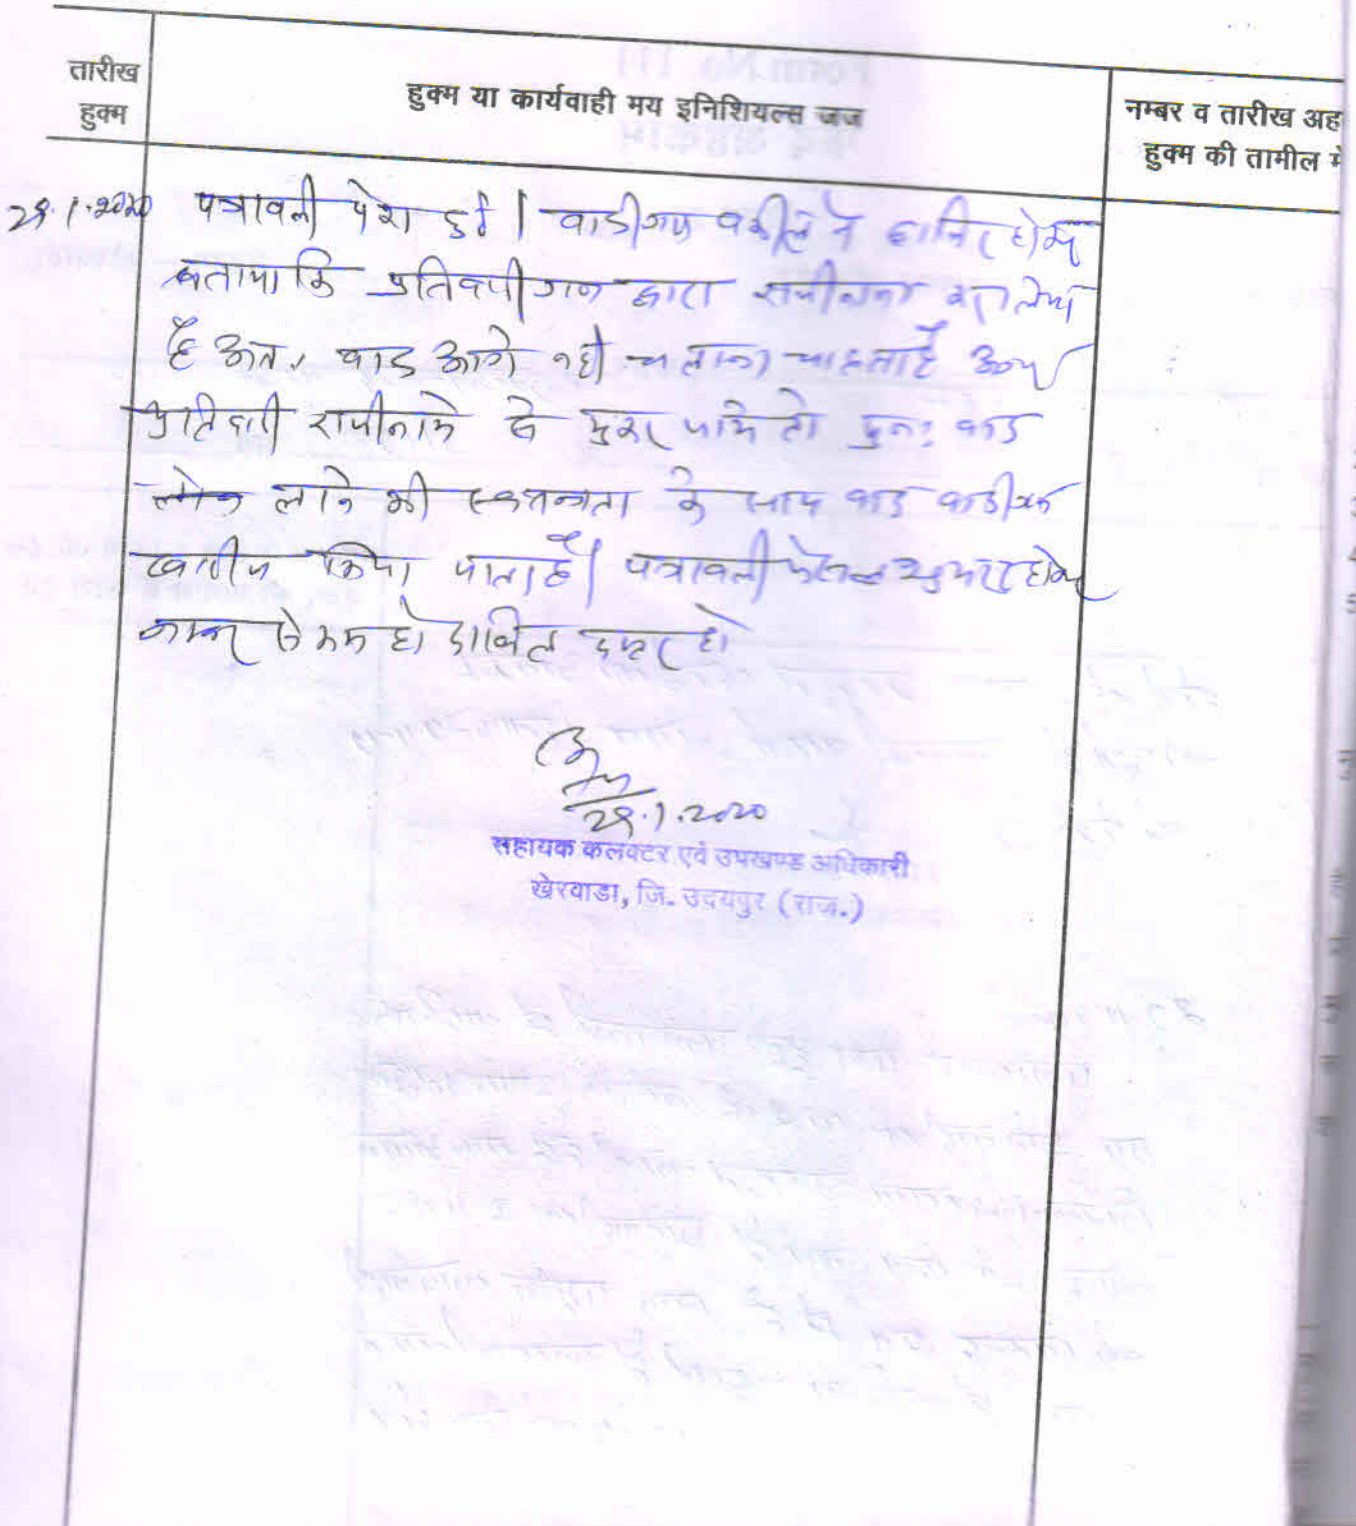 तारीख
हुक्म
हुक्म या कार्यवाही मय इनिशियल्स जज
नम्बर व तारीख अह
हुक्म की तामील में
29.1.2020 पत्रावली पेश हुई। वादीगण वकील ने हाजिर होकर
बताया कि प्रतिवादीगण द्वारा राजीनामा कर लिया
है अतः वाद आगे नही चलाना चाहता है अगर
प्रतिवादी राजीनामे से मुकर जाये तो पुनः वाद
लाने की स्वतन्त्रता के साथ वाद वादीगण
खारीज किया जाता है। पत्रावली फैसल शुमार होकर
नम्बर से कम हो दाखिल दफ्तर हो
29.1.2020
सहायक कलक्टर एवं उपखण्ड अधिकारी
खेरवाडा, जि. उदयपुर (राज.)